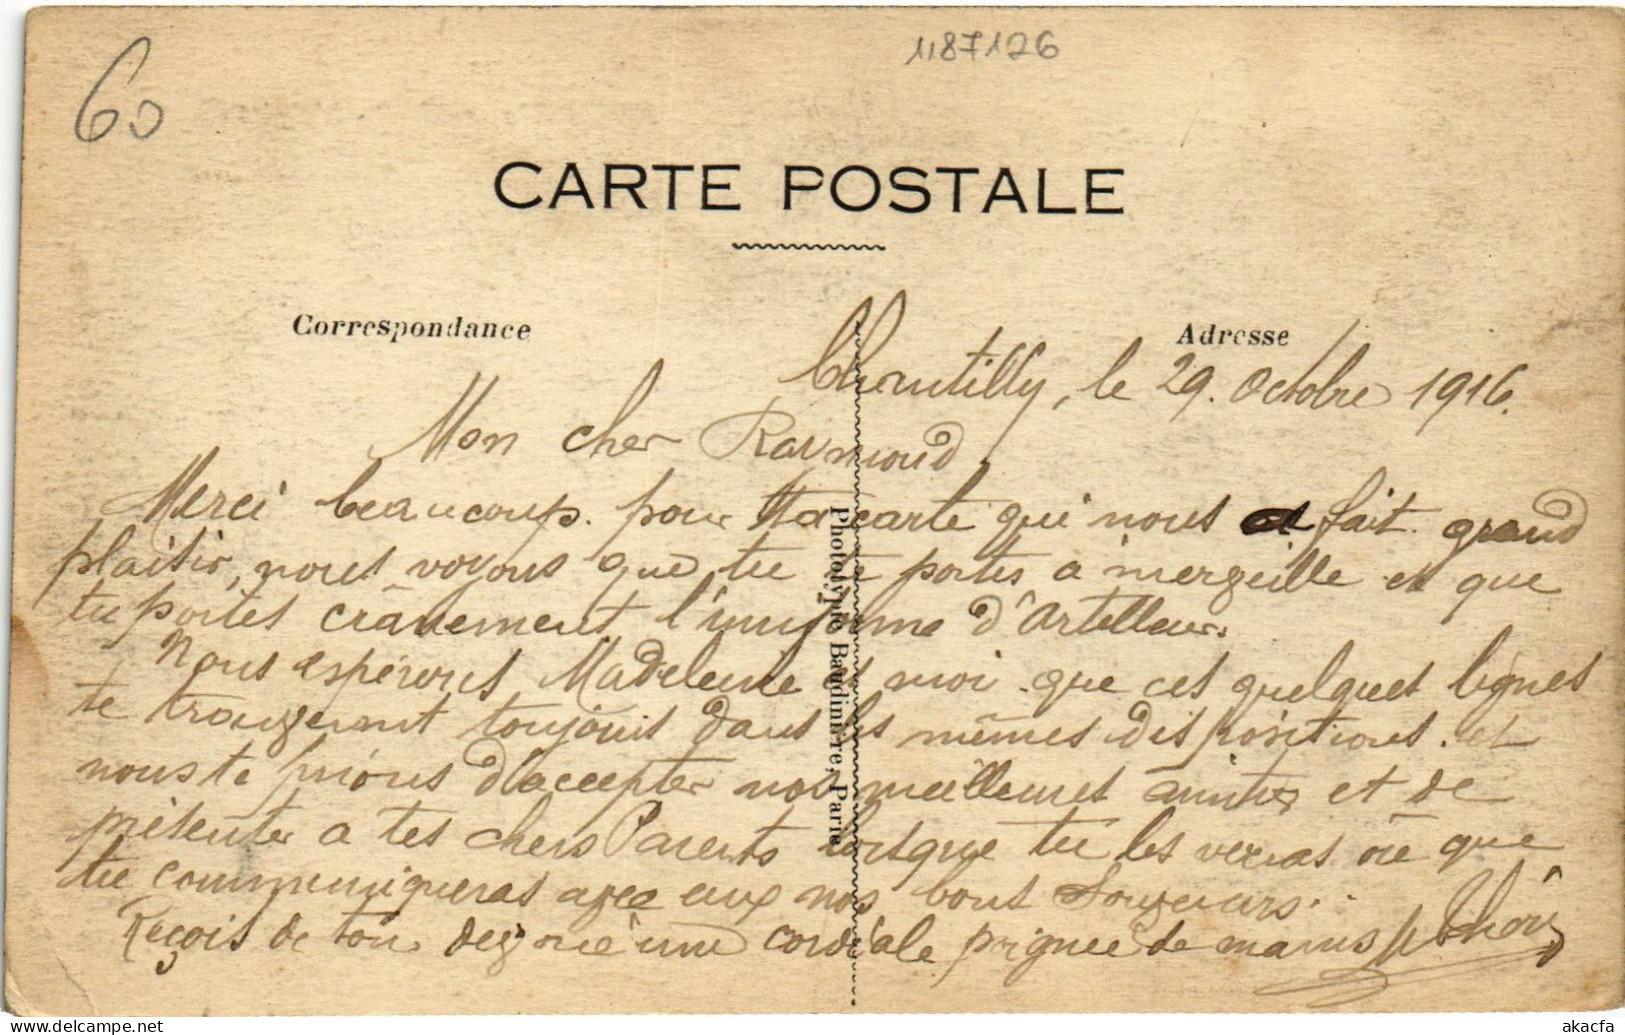 60
1187126
CARTE POSTALE
Correspondance
Adresse
Chantilly, le 29. Octobre 1916.
Mon cher Raymond
Merci beaucoup. pour ta carte qui nous fait grand
plaisir, nous voyons que tu te portes à merveille et que
tu portes crânement l'uniforme d'Artilleur.
Nous espérons Madeleine et moi que ces quelques lignes
te trouveront toujours dans les mêmes dispositions. et
nous te prions d'accepter nos meilleures amitiés et de
présenter à tes chers Parents lorsque tu les verras où que
tu communiqueras avec eux nos bons Souvenirs.
Reçois de ton dévoué une cordiale poignée de mains
Phototypie Baudinière, Paris
akacfa
delcampe.net